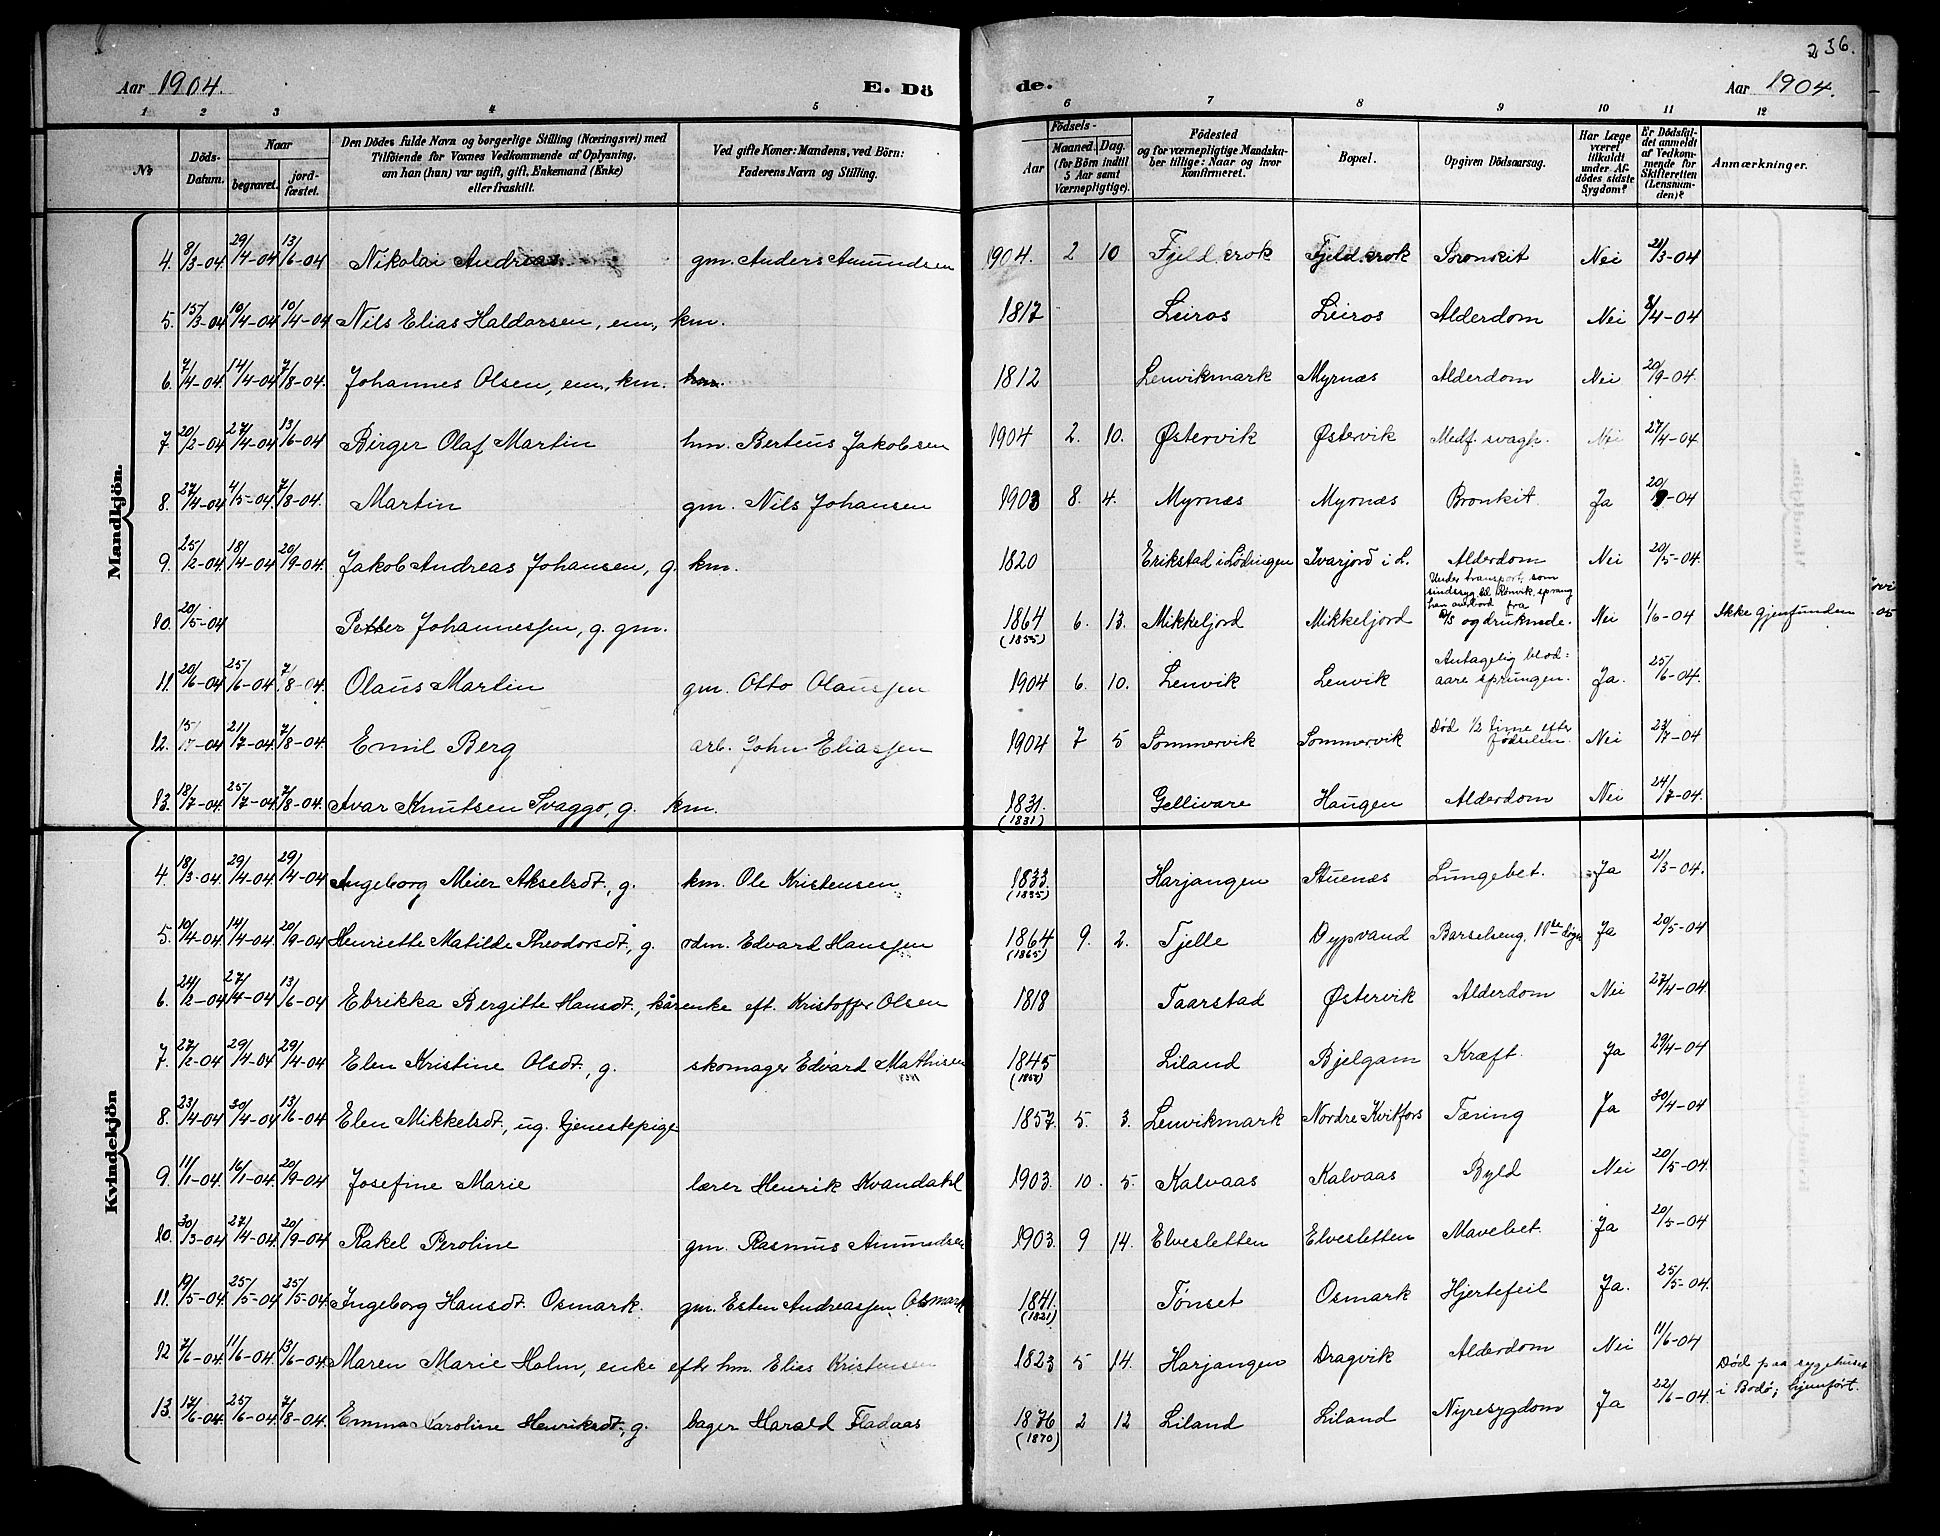 236.
Aar 1904. E. Dö
de. Aar 1904.
1 2 3 4 5 6 7 8 9 10 11 12
No
Döds-Datum.
Naar
begravet.
jord-fæstet.
Den Dödes fulde Navn og borgerlige Stilling (Næringsvei) med
Tilföiende for Voxnes Vedkommende af Oplysning,
om han (hun) var ugift, gift, Enkemand (Enke)
eller fraskilt.
Ved gifte Koner: Mandens, ved Börn:
Faderens Navn og Stilling.
Födsels-
Aar
Maaned. Dag.
(for Börn indtil
5 Aar samt
Værnepligtige).
Födested
og for værnepligtige Mandska-
ber tillige: Naar og hvor
konfirmeret.
Bopæl.
Opgiven Dödsaarsag.
Har Læge
været
tilkaldt
under Af-
dödes sidste
Sygdom?
Er Dödsfal-
det anmeldt
af Vedkom-
mende for
Skifteretten
(Lensman-
den)?
Anmærkninger.
Mandkjön.
4. 8/3-04 29/4-04 13/6-04 Nikolai Andreas gm. Anders Amundsen 1904. 2 10 Fjeldkrok Fjeldkrok Bronkit Nei 21/3-04
5. 15/3-04 10/4-04 10/4-04 Nils Elias Haldorsen, em, km. 1817 Leiros Leiros Alderdom Nei 8/4-04
6. 7/4-04 14/4-04 7/8-04. Johannes Olsen, em, km. 1812 Lenvikmark Myrnæs Alderdom Nei 20/9-04.
7. 20/2-04 27/4-04 13/6-04 Birger Olaf Martin hm. Berteus Jakobsen 1904 2. 10. Østervik Østervik Medf. svagh. Nei 27/4-04
8. 27/4-04 4/5-04 7/8-04. Martin gm. Nils Johansen 1903 8. 4. Myrnæs Myrnæs Bronkit Ja 20/9-04
9. 25/2-04 18/4-04 20/9-04 Jakob Andreas Johansen, g. km. 1820 Erikstad i Lødingen Ivarjord i L. Alderdom Nei 20/5-04.
10. 20/5-04 Petter Johannessen, g. gm. 1864 (1855) 6. 13. Mikkeljord Mikkeljord Under transport, som
sindssyg til Rønvik, sprang
han overbord fra
D/S og druknede. Nei 1/6-04 Ikke gjenfunden
11. 20/6-04 25/6-04. 7/8-04. Olaus Martin gm. Otto Olaussen 1904 6. 10. Lenvik Lenvik Antagelig blod=
aare sprungen. Ja. 25/6-04.
12. 15/7-04 21/7-04 7/8-04. Emil Berg arb. John Eliassen 1904 7 5 Sommervik Sommervik Død 1/2 time efter
fødselen. Nei 23/7-04
13. 18/7-04 25/7-04 7/8-04. Ivar Knutsen Svaggo, g. km. 1831. (1831) Gellivare Haugen Alderdom Nei 24/7-04.
Kvindekjön
4. 18/3-04 29/4-04 29/4-04 Ingeborg Meier Akselsdt., g. km. Ole Kristensen 1833 (1835) Harjangen Stuenæs Lungebet. Ja 21/3-04.
5. 10/4-04 14/4-04. 20/9-04 Henriette Matilde Theodorsdt, g. odm. Edvard Hanssen 1864 (1865) 9. 2. Tjelle Dypvand Barselseng, Ja 20/5-04
6. 24/2-04 27/4-04 13/6-04 Ebrikka Bergitte Hansdt., kårenke eft. Kristoffer Olsen 1818 Taarstad Østervik Alderdom Nei 27/4-04.
7. 27/2-04 29/4-04 29/4-04 Elen Kristine Olsdt, g. skomager Edvard Mathisen 1845 Liland Bjelgam Kræft. Ja 29/4-04
8. 23/4-04 30/4-04 13/6-04 Elen Mikkelsdt., ug. tjenestepige 1857. 5. 3. Lenvikmark Nordre Kvitfors Tæring Ja 30/4-04
9. 11/1-04. 16/1-04. 20/9-04 Josefine Marie lærer Henrik Kvandahl 1903. 10. 5. Kalvaas Kalvaas Byld Nei 20/5-04.
10. 30/3-04 27/4-04. 20/9-04 Rakel Peroline gm. Rasmus Amundsen 1903. 9 14. Elvesletten Elvesletten Mavebet. Ja 20/5-04.
11. 19/5-04. 25/5-04 25/5-04. Ingeborg Hansdt. Osmark. gm. Esten Andreassen Osmark 1841. (1821) Tønset Osmark Hjertefeil Ja. 25/5-04.
12 7/6-04. 11/6-04. 13/6-04. Maren Marie Holm, enke eftr hm. Elias Kristensen 1823 5 14. Harjangen Dragvik Alderdom Nei 11/6-04
13. 17/6-04. 25/6-04. 7/8-04. Emma Karoline Henriksdt., g. bager Harald Fladaas 1876 (1870) 2 12 Liland Liland Nyresygdom Ja 22/6-04. Død paa sygehuset
i Bodø; hjemført.